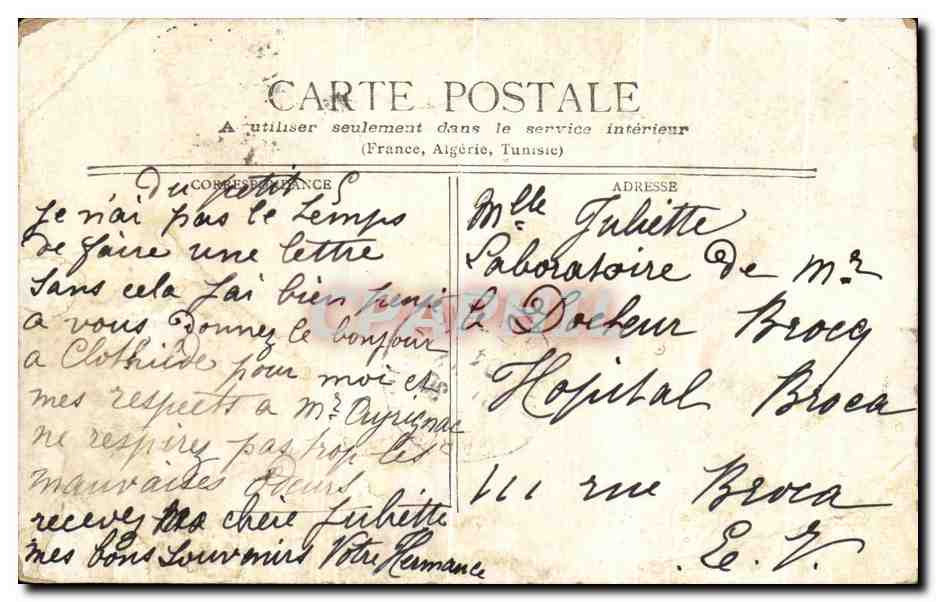 CARTE POSTALE
A utiliser seulement dans le service intérieur
(France, Algérie, Tunisie)
CORRESPONDANCE
Du petit 5
Je n'ai pas le temps
de faire une lettre
sans cela j'ai bien pensé
a vous Donnez le bonjour
a Clothilde pour moi et
mes respects a Mr
ne respirez pas trop les
mauvaises odeurs
recevez chère Juliette
mes bons souvenirs Votre Hermance
ADRESSE
Mlle Juliette
Laboratoire de Mr
le Docteur Brocq
Hopital Broca
111 rue Broca
E. V.
CPARAMA